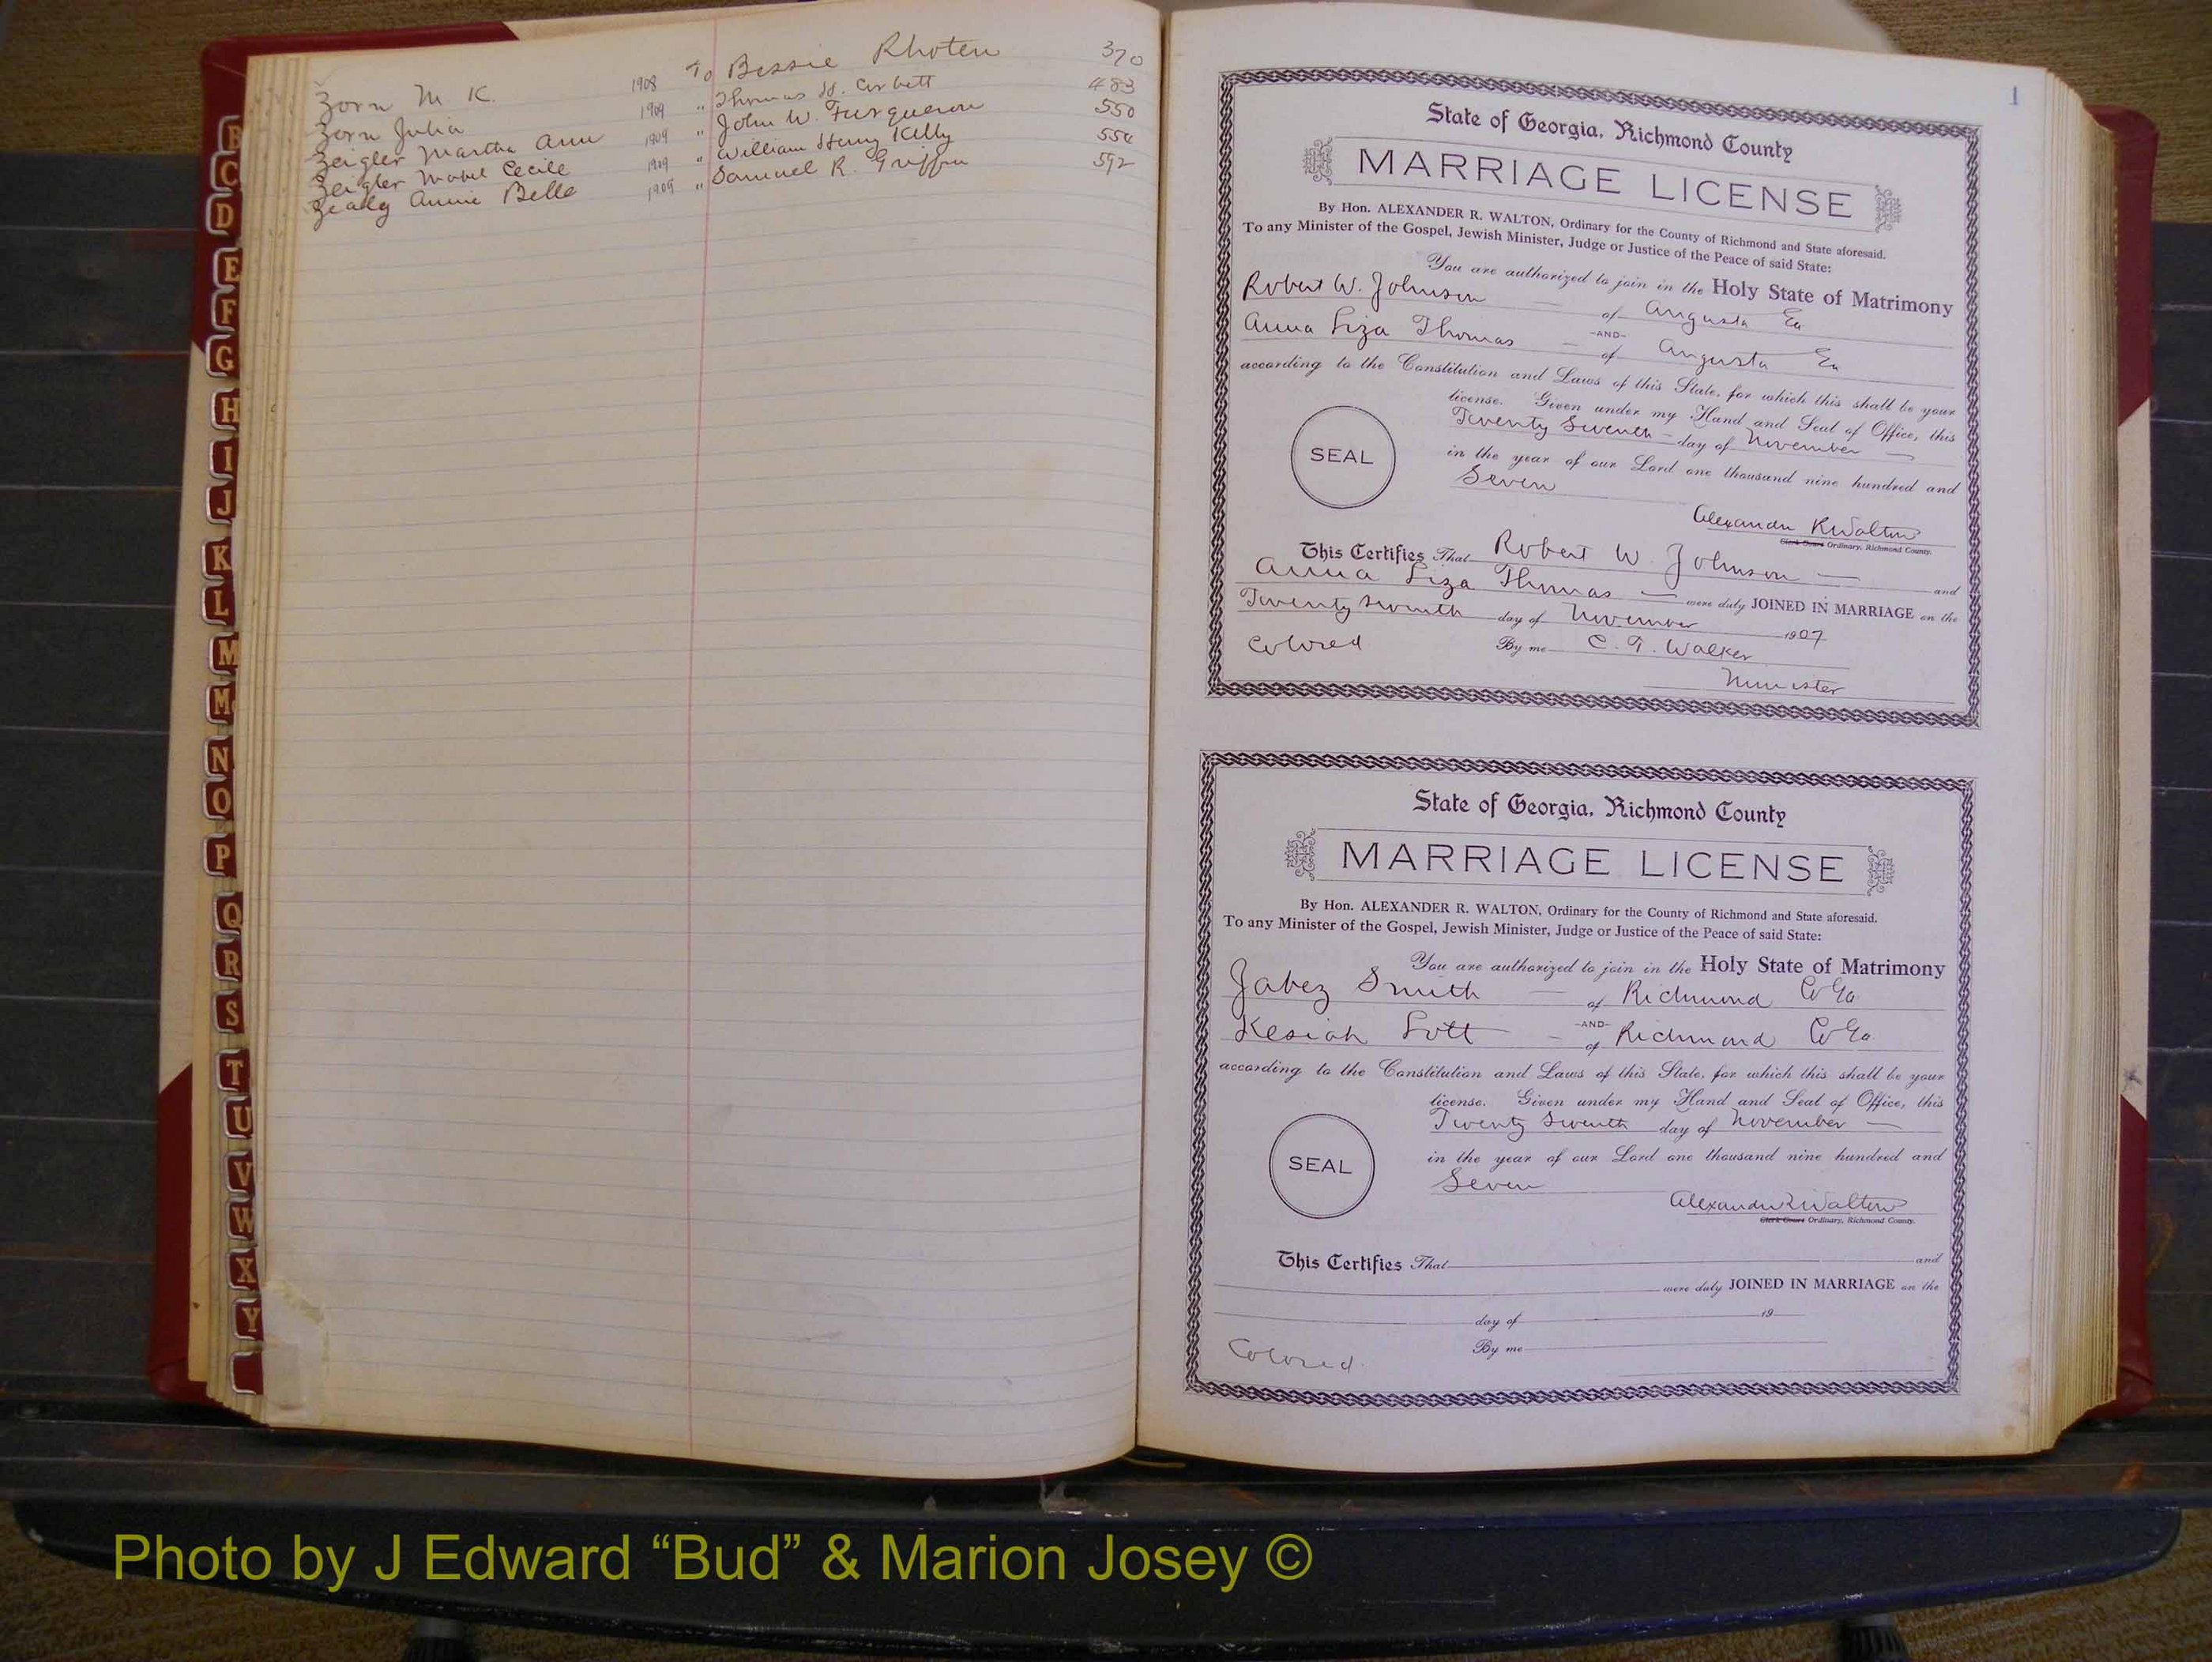 Zorn M. K. 1908 To Bessie Rhoten 370
Zorn Julia 1909 " Thomas H. Corbett 483
Zeigler Martha Ann 1909 " John W. Furqueron 550
Zeigler Mabel Cecile 1909 " William Henry Kelly 554
Zealy Annie Belle 1909 " Samuel R. Griffin 592
B
C
D
E
F
G
H
I
J
K
L
M
Mc
N
O
P
Q
R
S
T
U
V
W
X
Y
1
State of Georgia, Richmond County
MARRIAGE LICENSE
By Hon. ALEXANDER R. WALTON, Ordinary for the County of Richmond and State aforesaid.
To any Minister of the Gospel, Jewish Minister, Judge or Justice of the Peace of said State:
You are authorized to join in the Holy State of Matrimony
Robert W. Johnson of Augusta Ga
-AND-
Anna Liza Thomas of Augusta Ga
according to the Constitution and Laws of this State, for which this shall be your
license. Given under my Hand and Seal of Office, this
Twenty Seventh day of November
in the year of our Lord one thousand nine hundred and
Seven
SEAL
Alexander R Walton
Clerk Court Ordinary, Richmond County.
This Certifies That Robert W. Johnson and
Anna Liza Thomas were duly JOINED IN MARRIAGE on the
Twenty Seventh day of November 1907
Colored By me C. T. Walker
Minister
State of Georgia, Richmond County
MARRIAGE LICENSE
By Hon. ALEXANDER R. WALTON, Ordinary for the County of Richmond and State aforesaid.
To any Minister of the Gospel, Jewish Minister, Judge or Justice of the Peace of said State:
You are authorized to join in the Holy State of Matrimony
Jabez Smith of Richmond Co Ga
-AND-
Kesiah Lott of Richmond Co Ga
according to the Constitution and Laws of this State, for which this shall be your
license. Given under my Hand and Seal of Office, this
Twenty Seventh day of November
in the year of our Lord one thousand nine hundred and
Seven
SEAL
Alexander R Walton
Clerk Court Ordinary, Richmond County.
This Certifies That and
were duly JOINED IN MARRIAGE on the
day of 19
Colored. By me
Photo by J Edward “Bud” & Marion Josey ©